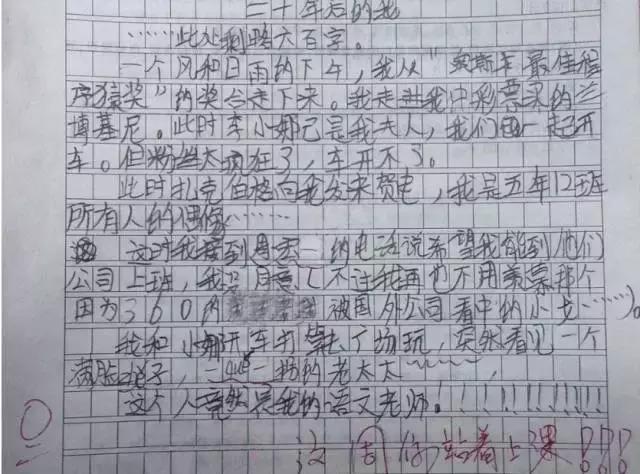 二十年后的我
……此处剩略六百字。
一个风和日雨的下午，我从"奥斯卡最佳程
序猿奖"的奖台走下来。我走进我中彩票买的兰
博基尼。此时李小娜已是我夫人，我们俩一起开
车。但粉丝太疯狂了，车开不了。
此时扎克伯格向我发来贺电，我是五年12班
所有人的偶像……
这时我接到周宏一的电话说希望我能到他们
公司上班，我 不过我再也不用羡慕那个
因为360的 被国外公司看中的小戈……)。
我和小娜开车 广场玩，突然看见一个
满脸 子， 的老太太～～～，
这个人竟然是我的语文老师！！！！！！！！！！
0
这周你站着上课！！！